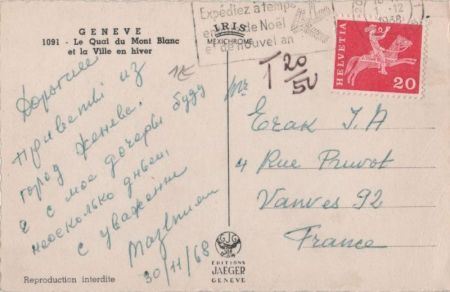 GENEVE
1091 - Le Quai du Mont Blanc
et la Ville en hiver
IRIS
MEXICHROME
Expédiez à temps
de Noël
et nouvel an
12
1968
HELVETIA
20
T 20/50
Дорогие
привет из
город Женева.
Я с мое дочеры буду
несколько дньеи,
с уважени
30/11/68
Mr
Erak I.A
4 Rue Pruvot
Vanves 92
France
GJG
EDITIONS
JAEGER
GENEVE
Reproduction interdite